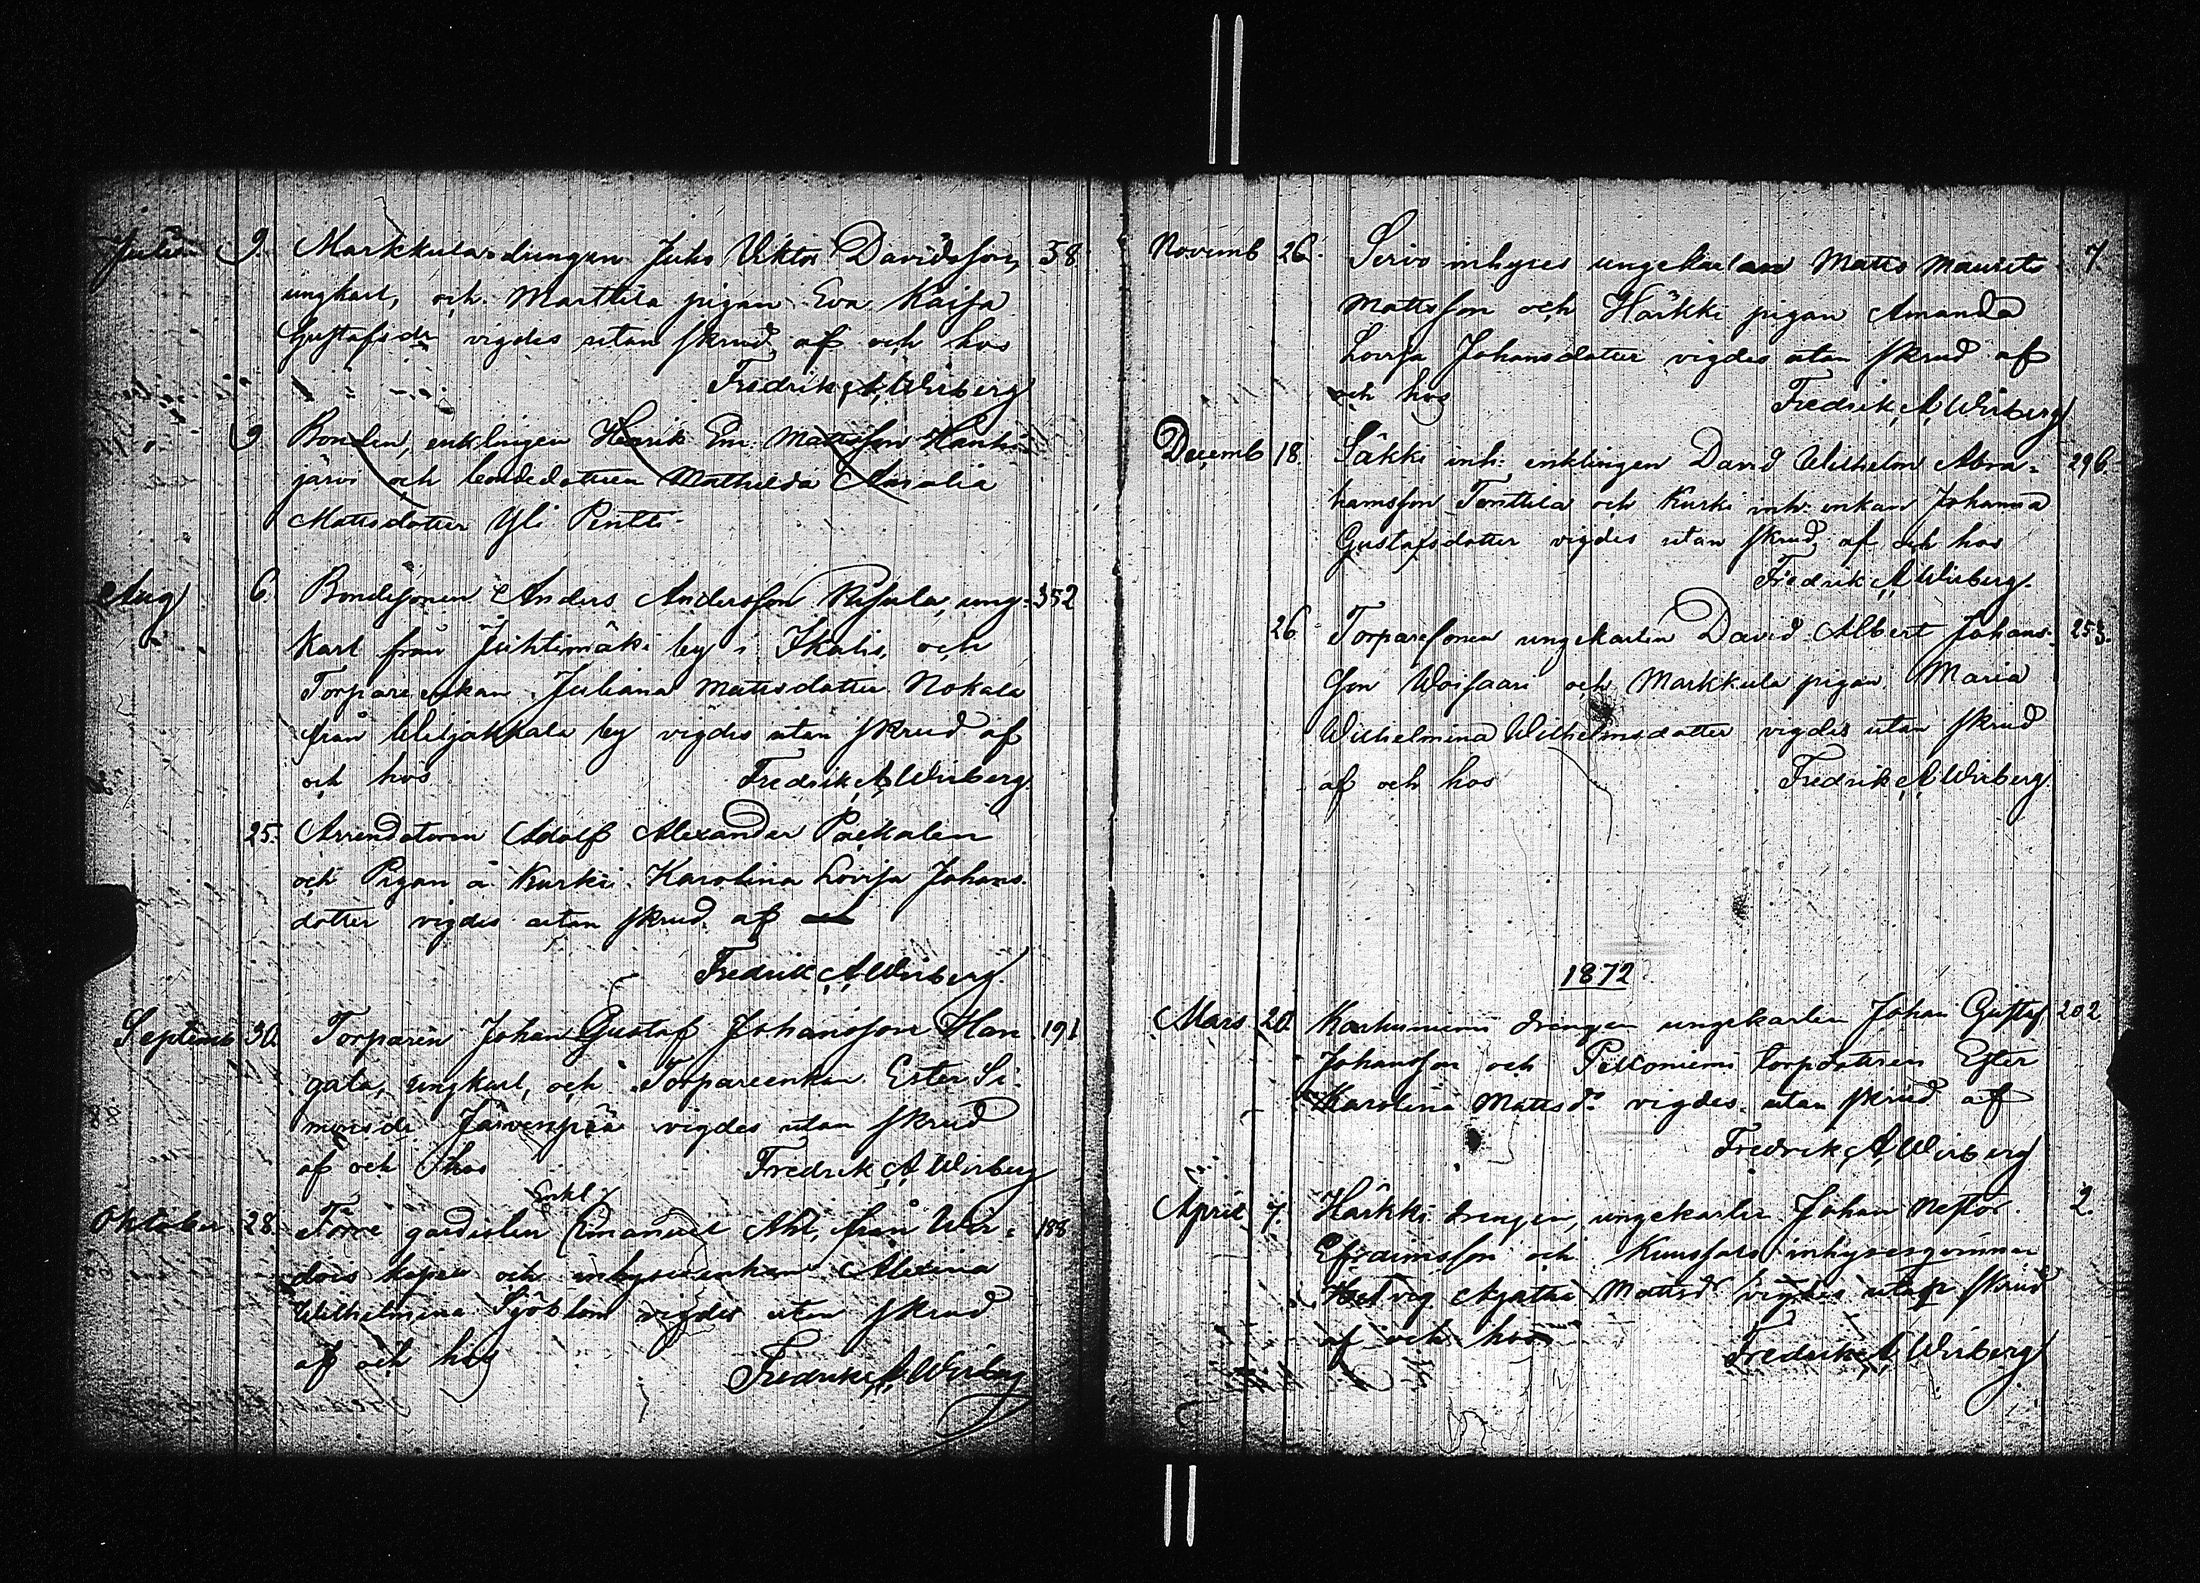 Julii 9. Markkula drengen Juho Viktor Davidsson, 58
ungkarl, och Marttila pigan Eva Kaisa
Gustafsdr vigdes utan skrud af och hos
Fredrik A Wirberg
9 Bonden, enklingen Henrik Em. Mattsson Hanhi-
järvi och bondedottren Mathilda Rosalia
Mattsdotter Yli Pentti
Aug 6. Bondesonen Anders Andersson Risula, ung- 352
karl från Juhtimäki by i Ikalis, och
Torpare enkan Juliana Mattsdotter Nokala
från Wiljakkala by vigdes utan skrud af
och hos Fredrik A Wirberg.
25. Arrendatorn Adolf Alexander
och Pigan å Kurki Karolina Lovisa Johans
dotter vigdes utan skrud af
Fredrik A Wirberg
Septemb 30. Torparen Johan Gustaf Johansson Han 191
gala, ungkarl, och Torpareenkan Ester Si-
monsdr Järvenpää vigdes utan skrud
af och hos Fredrik A Wirberg
Enkl
Oktober 28. Förre gardisten Emanuel Ahl, från Wir- 188
dois kapell och inhyseenkan Alexina
Wilhelmina Sjöblom vigdes utan skrud
af och hos
Fredrik A Wirberg
Novemb 26. Sirvo inhyses ungekarlen Matts Maurits 7.
Mattsson och Härkki pigan Amanda
Lovisa Johansdotter vigdes utan skrud af
och hos Fredrik A Wirberg
Decemb 18. Säkki inh: enklingen David Wilhelm Abra- 296.
hamsson Tonttila och Kurki inh: enkan Johanna
Gustafsdotter vigdes utan skrud af och hos
Fredrik A Wirberg.
26 Torparesonen ungekarlen David Albert Johans- 253.
son Woisaari och Markkula pigan Maria
Wilhelmina Wilhelmsdotter vigdes utan skrud
af och hos Fredrik A Wirberg.
1872
Mars 20. drengen ungekarlen Johan Gustaf 202
Johansson och torpdottren Ester
Karolina Mattsdr vigdes utan skrud af
Fredrik A Wirberg
April 7. Härkki drengen, ungekarlen Johan Nestor 2.
Efraimsson och inhysesqvinnan
Hedvig Agatha Mattsdr vigdes utan skrud
af och hos Fredrik A Wirberg